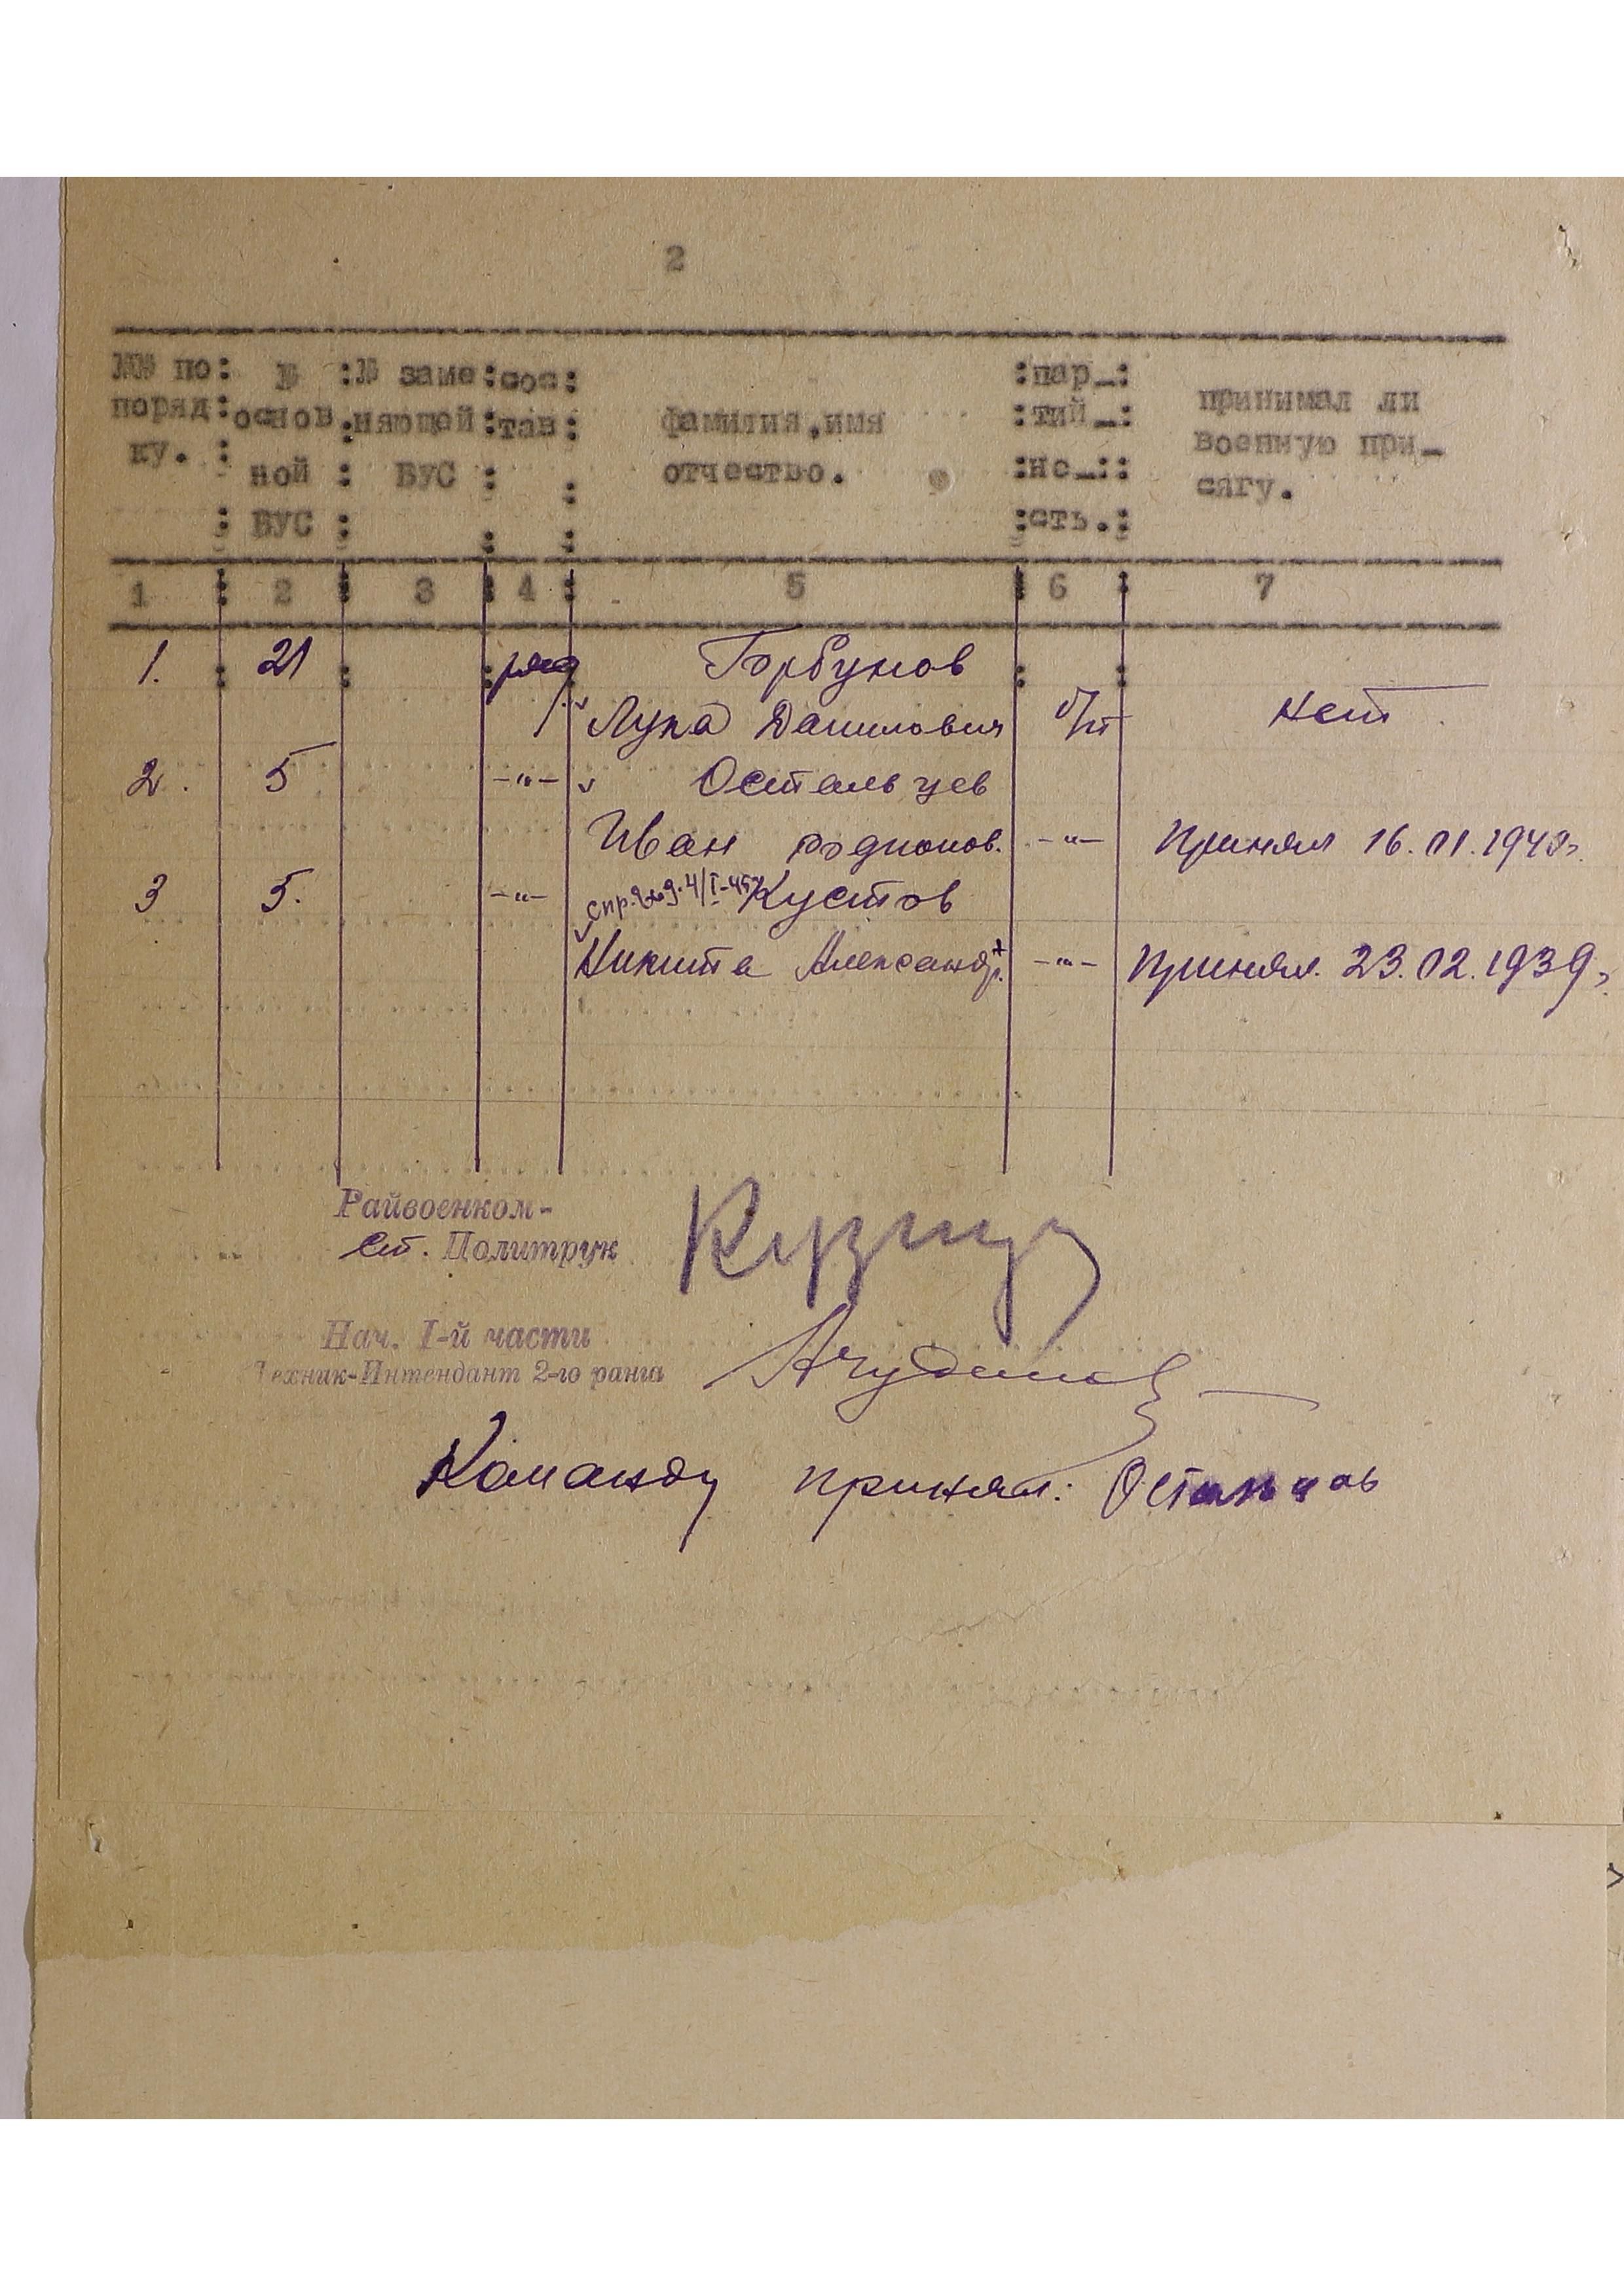 2
№№ по : № : № заме : сос :
поряд : основ : няющей : тав :
ку. : ной : ВУС :
: ВУС :
фамилия, имя
отчество.
: пар_ :
: тий_ :
: но_ :
: сть. :
принимал ли
военную при_
сягу.
1 : 2 : 3 : 4 : 5 : 6 : 7
1. 21 ряд Горбунов
Лука Данилович б/п нет
2. 5 -"- Остальцев
Иван родионов. -"- принял 16.01.1940г.
3 5. -"- Кустов
Никита Александр. -"- принял 23.02.1939г.
Райвоенком-
ст. Политрук
Нач. I-й части
Техник-Интендант 2-го ранга
Команду принял: